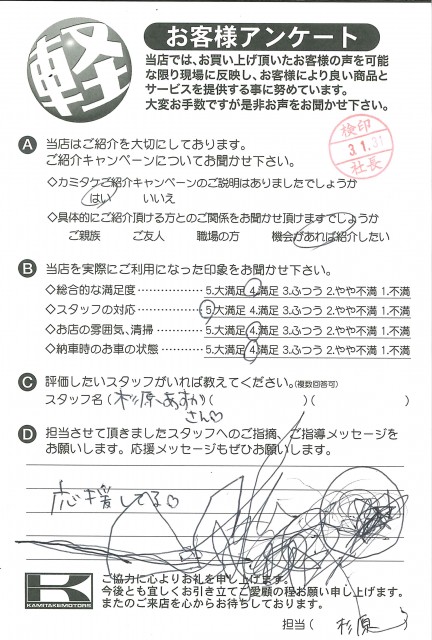 軽
お客様アンケート
当店では、お買い上げ頂いたお客様の声を可能
な限り現場に反映し、お客様により良い商品と
サービスを提供する事に努めています。
大変お手数ですが是非お声をお聞かせ下さい。
検印
3.1.31
社長
A 当店はご紹介を大切にしております。
ご紹介キャンペーンについてお聞かせ下さい。
◇カミタケご紹介キャンペーンのご説明はありましたでしょうか
はい いいえ
◇具体的にご紹介頂ける方とのご関係をお聞かせ頂けますでしょうか
ご親族 ご友人 職場の方 機会があれば紹介したい
B 当店を実際にご利用になった印象をお聞かせ下さい。
◇総合的な満足度……………… 5.大満足 4.満足 3.ふつう 2.やや不満 1.不満
◇スタッフの対応……………… 5.大満足 4.満足 3.ふつう 2.やや不満 1.不満
◇お店の雰囲気、清掃………… 5.大満足 4.満足 3.ふつう 2.やや不満 1.不満
◇納車時のお車の状態………… 5.大満足 4.満足 3.ふつう 2.やや不満 1.不満
C 評価したいスタッフがいれば教えてください。(複数回答可)
スタッフ名(杉原あすか)( )( )
さん♡
D 担当させて頂きましたスタッフへのご指摘、ご指導メッセージを
お願いします。応援メッセージもぜひお願いします。
応援してる♡
K
KAMITAKE MOTORS
ご協力に心よりお礼を申し上げます。
今後とも宜しくお引き立てご愛顧の程お願い申し上げます。
またのご来店を心からお待ちしております。
担当(杉原)